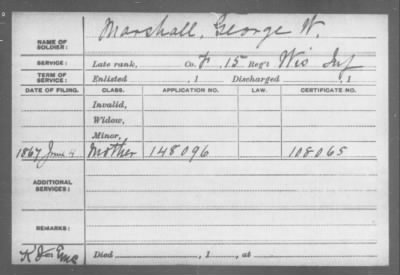 NAME OF SOLDIER: Marshall, George W.
SERVICE: Late rank, Co. F. 15 Reg't Wis Inf
TERM OF SERVICE: Enlisted , 1 Discharged , 1
DATE OF FILING. CLASS. APPLICATION NO. LAW. CERTIFICATE NO.
Invalid,
Widow,
Minor,
1867 June 4 Mother 148096 108065
ADDITIONAL SERVICES:
REMARKS:
Died , 1 , at